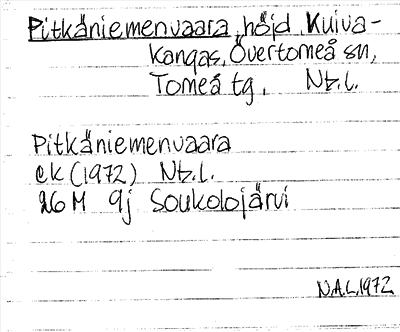 Pitkäniemenvaara, höjd, Kuiva-
kangas, Övertorneå sn,
Torneå tg. Nb.l.
Pitkäniemenvaara
ek (1972) Nb.l.
26M 9j Soukolojärvi
N.A.L.1972